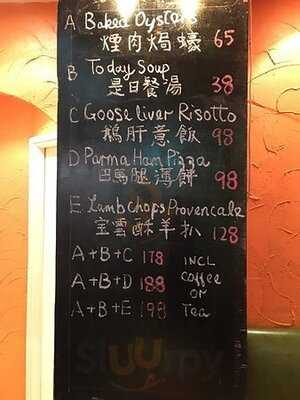 A Baked Oysters
煙肉焗蠔 65
B Today Soup
是日餐湯 38
C Goose liver Risotto
鵝肝意飯 98
D Parma Ham Pizza
巴馬腿薄餅 98
E Lamb Chops Provencale
宝雲酥羊扒 128
A+B+C 178 INCL
A+B+D 188 Coffee
OR
A+B+E 198 Tea
Sluurpy